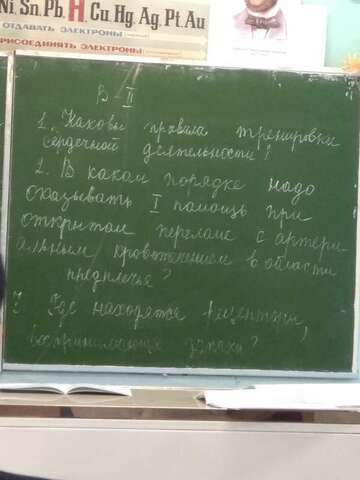 Ni Sn Pb H Cu Hg Ag Pt Au
ОТДАВАТЬ ЭЛЕКТРОНЫ
ПРИСОЕДИНЯТЬ ЭЛЕКТРОНЫ
В II
1. Каковы правила тренировки
сердечной деятельности?
2. В каком порядке надо
оказывать I помощь при
открытом переломе с артери
альным кровотечением в области
предплечья?
3 Где находятся рецепторы,
воспринимающие запахи?